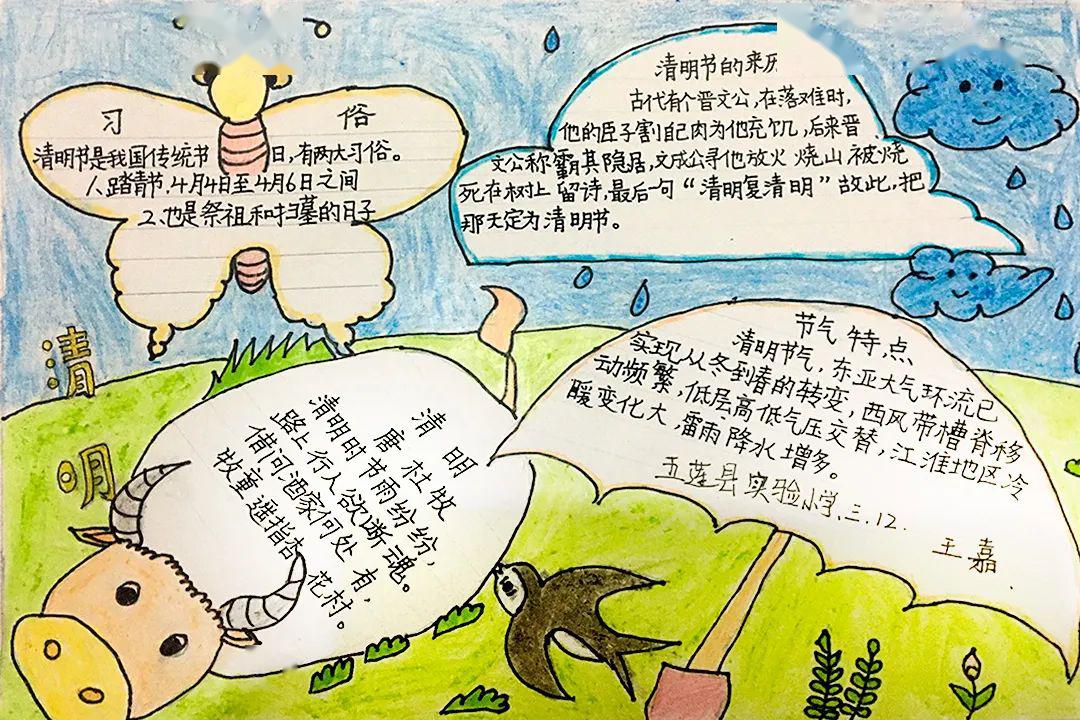 清明
习 俗
清明节是我国传统节日,有两大习俗。
人踏青节,4月4日至4月6日之间
2、也是祭祖和扫墓的日子
清明节的来历
古代有个晋文公,在落难时,
他的臣子割自己肉为他充饥,后来晋
文公称霸其隐居,文成公寻他放火烧山被烧
死在树上留诗,最后一句“清明复清明”故此,把
那天定为清明节。
清明
唐 杜牧
清明时节雨纷纷,
路上行人欲断魂。
借问酒家何处有,
牧童遥指杏花村。
节气特点
清明节气,东亚大气环流已
实现从冬到春的转变,西风带槽脊移
动频繁,低层高低气压交替,江淮地区冷
暖变化大,雷雨降水增多。
五莲县实验小学,三.12.
王嘉